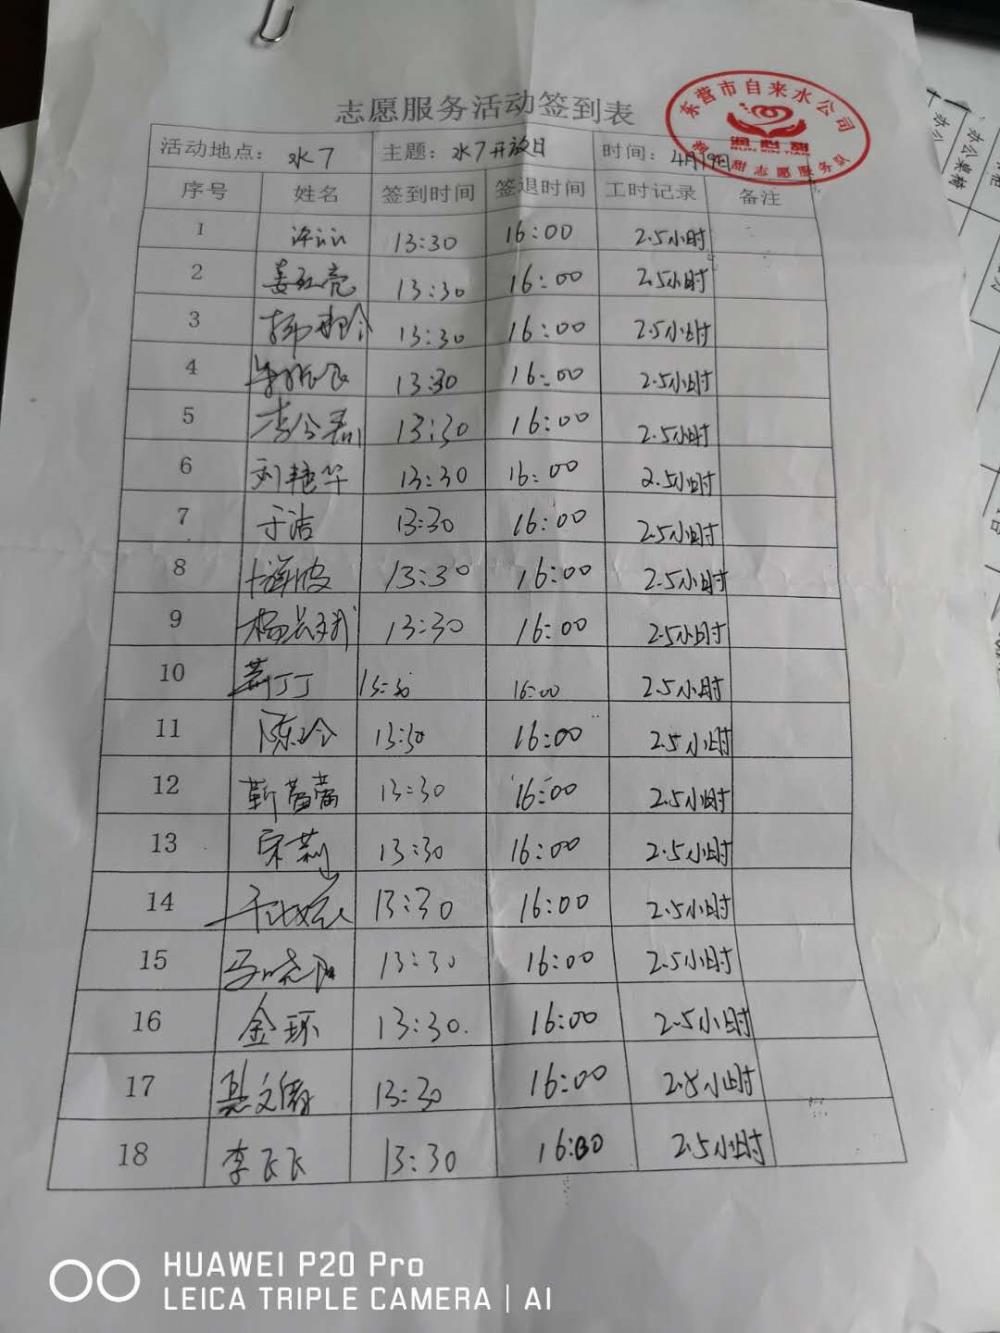 志愿服务活动签到表
东营市自来水公司
甜志愿服务队
活动地点： 水厂 主题：水厂开放日 时间：4月19日
序号 姓名 签到时间 签退时间 工时记录 备注
1 13:30 16:00 2.5小时
2 姜红亮 13:30 16:00 2.5小时
3 13:30 16:00 2.5小时
4 13:30 16:00 2.5小时
5 13:30 16:00 2.5小时
6 刘艳华 13:30 16:00 2.5小时
7 于洁 13:30 16:00 2.5小时
8 13:30 16:00 2.5小时
9 13:30 16:00 2.5小时
10 丁丁 13:30 16:00 2.5小时
11 陈玲 13:30 16:00 2.5小时
12 靳蕾蕾 13:30 16:00 2.5小时
13 宋莉 13:30 16:00 2.5小时
14 13:30 16:00 2.5小时
15 马晓阳 13:30 16:00 2.5小时
16 金环 13:30. 16:00 2.5小时
17 13:30 16:00 2.5小时
18 李飞飞 13:30 16:00 2.5小时
HUAWEI P20 Pro
LEICA TRIPLE CAMERA | AI